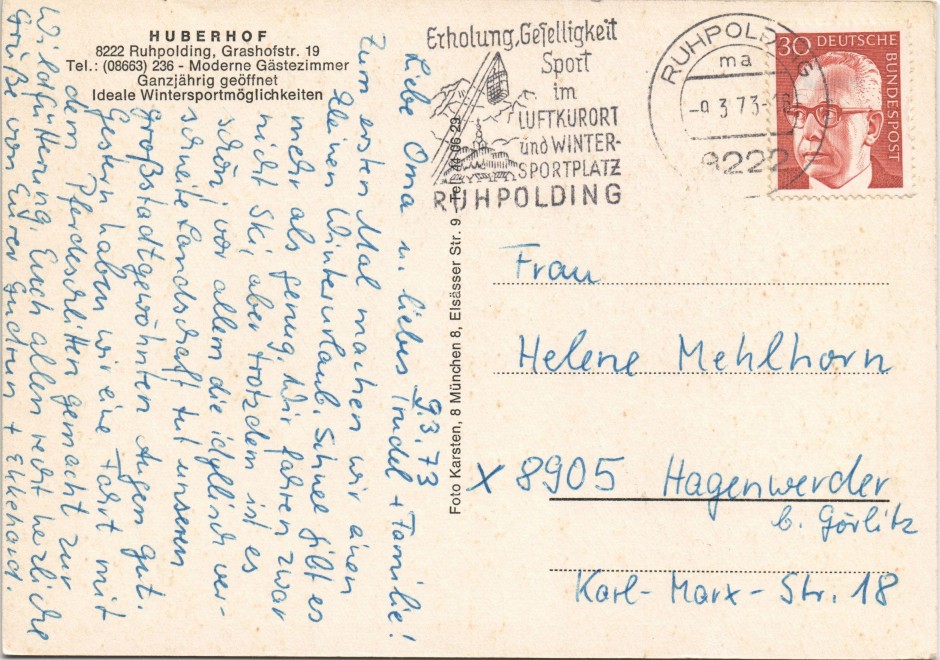 HUBERHOF
8222 Ruhpolding, Grashofstr. 19
Tel.: (08663) 236 - Moderne Gästezimmer
Ganzjährig geöffnet
Ideale Wintersportmöglichkeiten
Erholung, Geselligkeit
Sport
im
LUFTKURORT
und WINTER-
SPORTPLATZ
RUHPOLDING
RUHPOLDING
ma
-9.3.73-
8222
30 DEUTSCHE
BUNDESPOST
9.3.73
Liebe Oma u. liebes Trudel + Familie!
Zum ersten Mal machen wir einen
kleinen Winterurlaub. Schnee gibt es
mehr als genug. Wir fahren zwar
nicht Ski, aber trotzdem ist es
schön, vor allem die idyllisch ver-
schneite Landschaft tut unseren
großstadtgewöhnten Augen gut.
Gestern haben wir eine Fahrt mit
dem Pferdeschlitten gemacht zur
Wildfütterung. Euch allen recht herzliche
Grüße von Eurer Gudrun + Ekkehard.
Foto Karsten, 8 München 8, Elsässer Str. 9 - Tel. 44 06 29
Frau
Helene Mehlhorn
X 8905 Hagenwerder
b. Görlitz
Karl-Marx-Str. 18